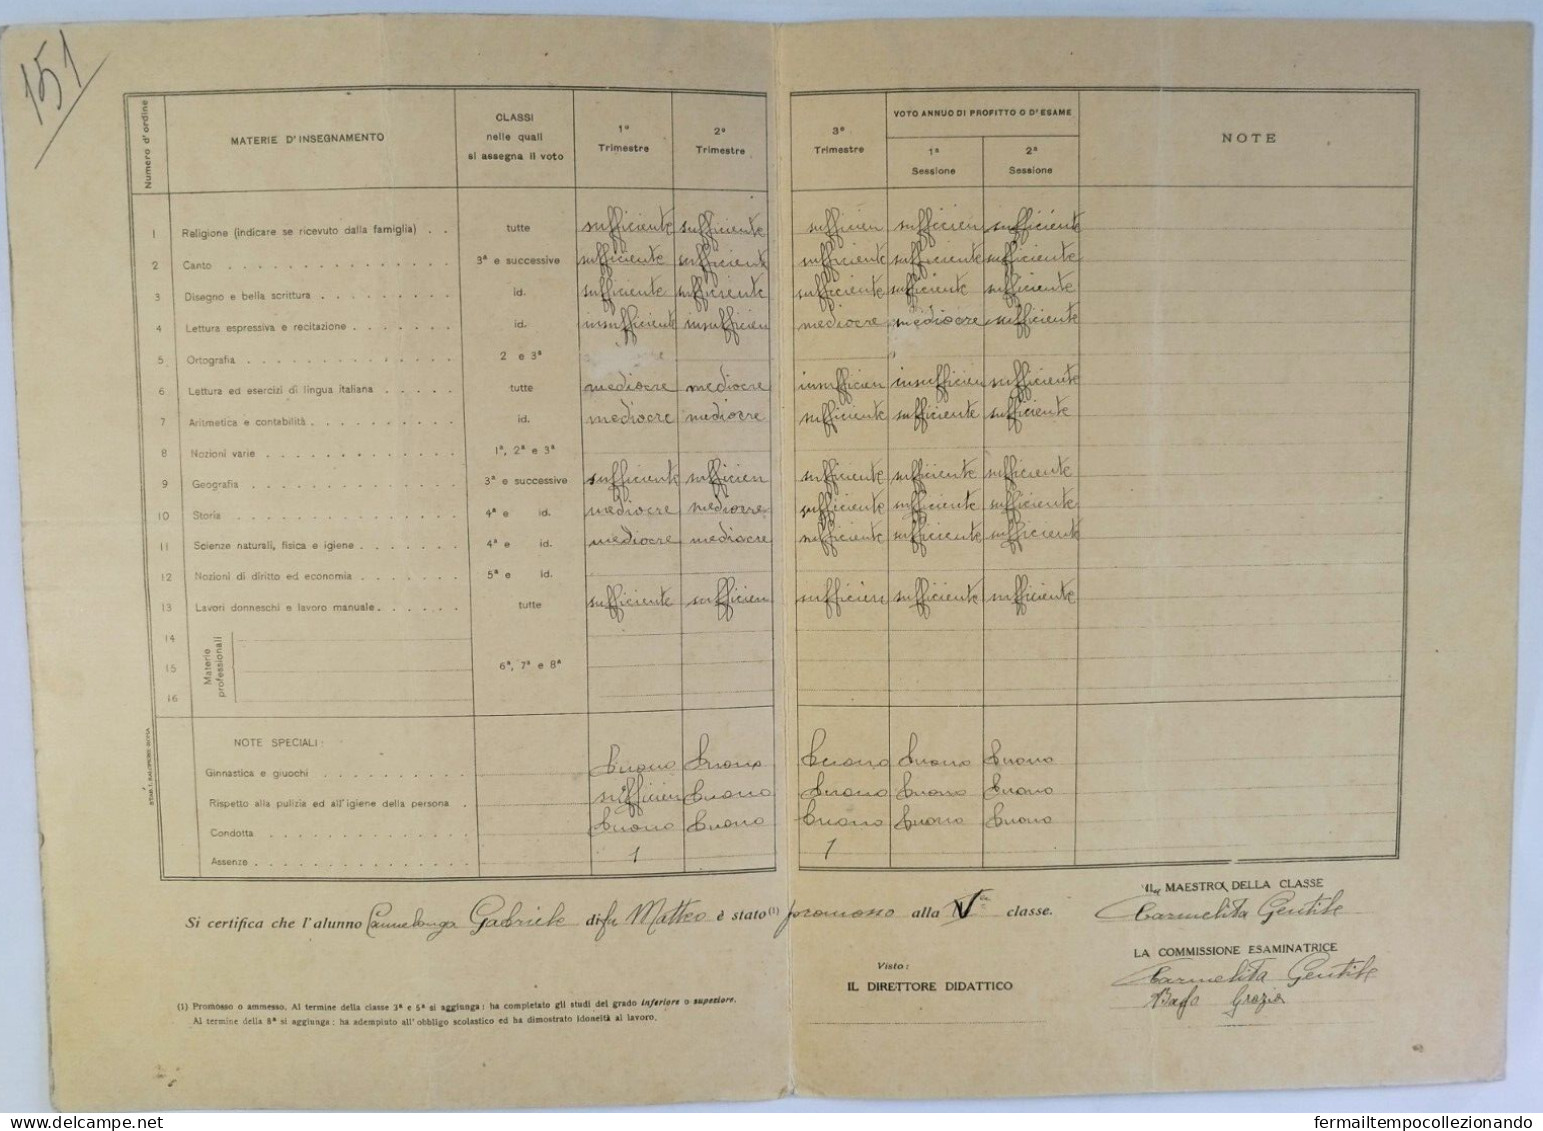 151
Numero d'ordine
MATERIE D'INSEGNAMENTO
CLASSI
nelle quali
si assegna il voto
1º
Trimestre
2º
Trimestre
3º
Trimestre
VOTO ANNUO DI PROFITTO O D'ESAME
1ª
Sessione
2ª
Sessione
NOTE
1 Religione (indicare se ricevuto dalla famiglia) . . tutte sufficiente sufficiente sufficien sufficien sufficiente
2 Canto 3ª e successive sufficiente sufficiente sufficiente sufficiente sufficiente
3 Disegno e bella scrittura id. sufficiente sufficiente sufficiente sufficiente sufficiente
4 Lettura espressiva e recitazione id. insufficiente insufficien mediocre mediocre sufficiente
5 Ortografia 2 e 3ª
6 Lettura ed esercizi di lingua italiana tutte mediocre mediocre insufficien insufficien sufficiente
7 Aritmetica e contabilità id. mediocre mediocre sufficiente sufficiente sufficiente
8 Nozioni varie 1ª, 2ª e 3ª
9 Geografia 3ª e successive sufficiente sufficien sufficiente sufficiente sufficiente
10 Storia 4ª e id. mediocre mediocre sufficiente sufficiente sufficiente
11 Scienze naturali, fisica e igiene 4ª e id. mediocre mediocre sufficiente sufficiente sufficiente
12 Nozioni di diritto ed economia 5ª e id.
13 Lavori donneschi e lavoro manuale tutte sufficiente sufficien sufficien sufficiente sufficiente
14
15 Materie professionali 6ª, 7ª e 8ª
16
NOTE SPECIALI:
Ginnastica e giuochi buono buono buono buono buono
Rispetto alla pulizia ed all'igiene della persona . sufficien buono buono buono buono
Condotta buono buono buono buono buono
Assenze 1 1
Si certifica che l'alunno Gabriele di fu Matteo è stato (1) promosso alla V classe.
IL MAESTRO DELLA CLASSE
Carmelita Gentile
LA COMMISSIONE ESAMINATRICE
Carmelita Gentile
Grazia
Visto:
IL DIRETTORE DIDATTICO
(1) Promosso o ammesso. Al termine della classe 3ª e 5ª si aggiunga: ha completato gli studi del grado inferiore o superiore.
Al termine della 8ª si aggiunga: ha adempiuto all'obbligo scolastico ed ha dimostrato idoneità al lavoro.
delcampe.net
fermailtempocollezionando